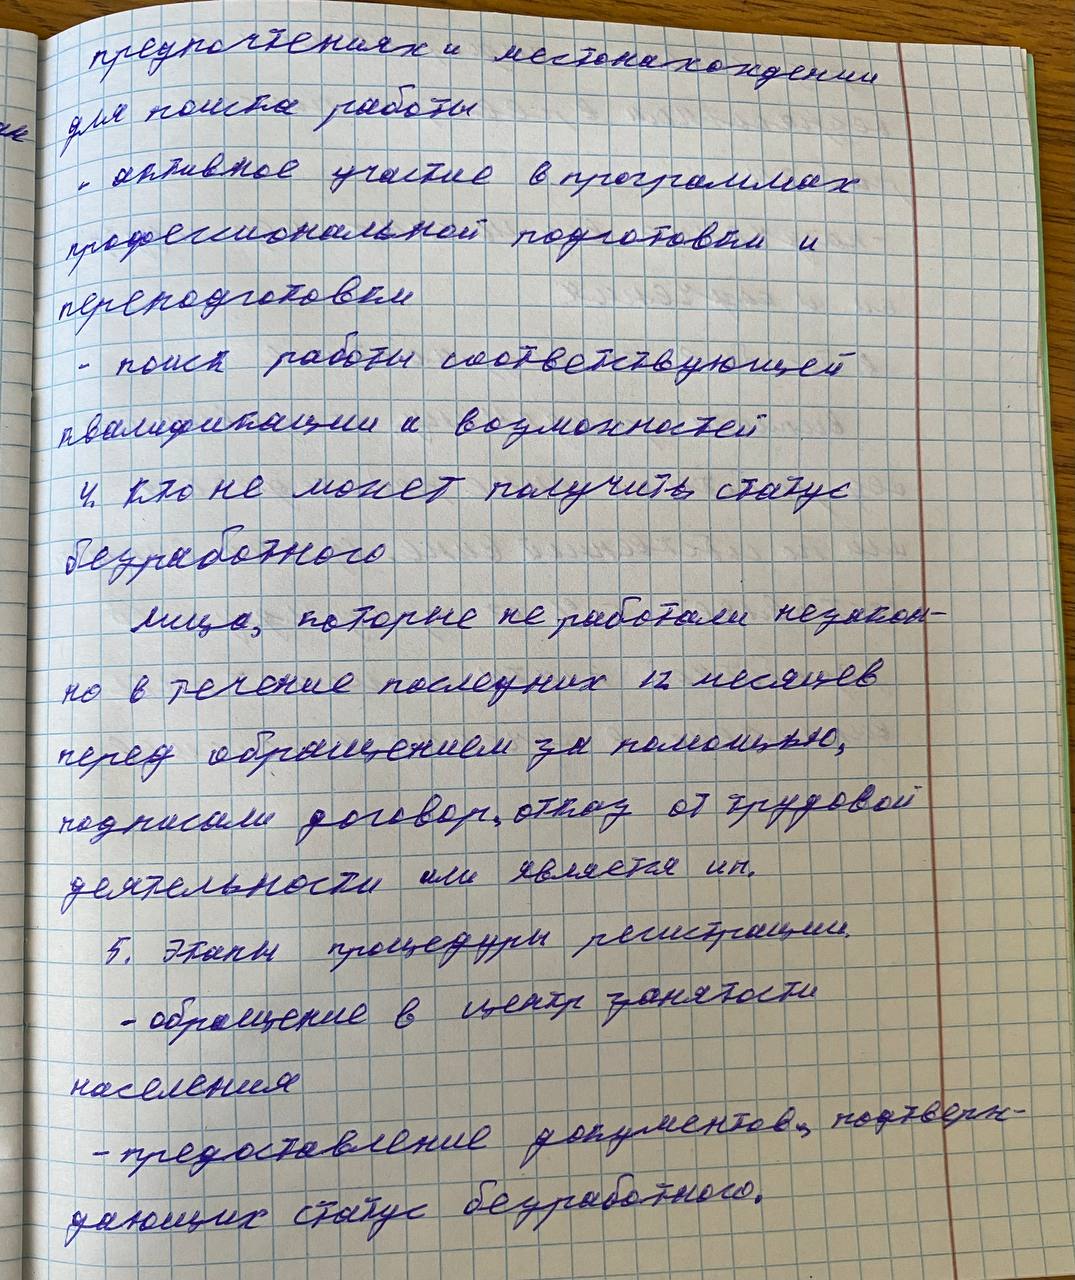 предпочтениях и местонахождении
для поиска работы
- активное участие в программах
профессиональной подготовки и
переподготовки
- поиск работы соответствующей
квалификации и возможностей
4. Кто не может получить статус
безработного
Лица, которые не работали незакон-
но в течение последних 12 месяцев
перед обращением за помощью,
подписали договор, отказ от трудовой
деятельности или является ип.
5. Этапы процедуры регистрации.
- обращение в центр занятости
населения
- предоставление документов, подтверж-
дающих статус безработного.